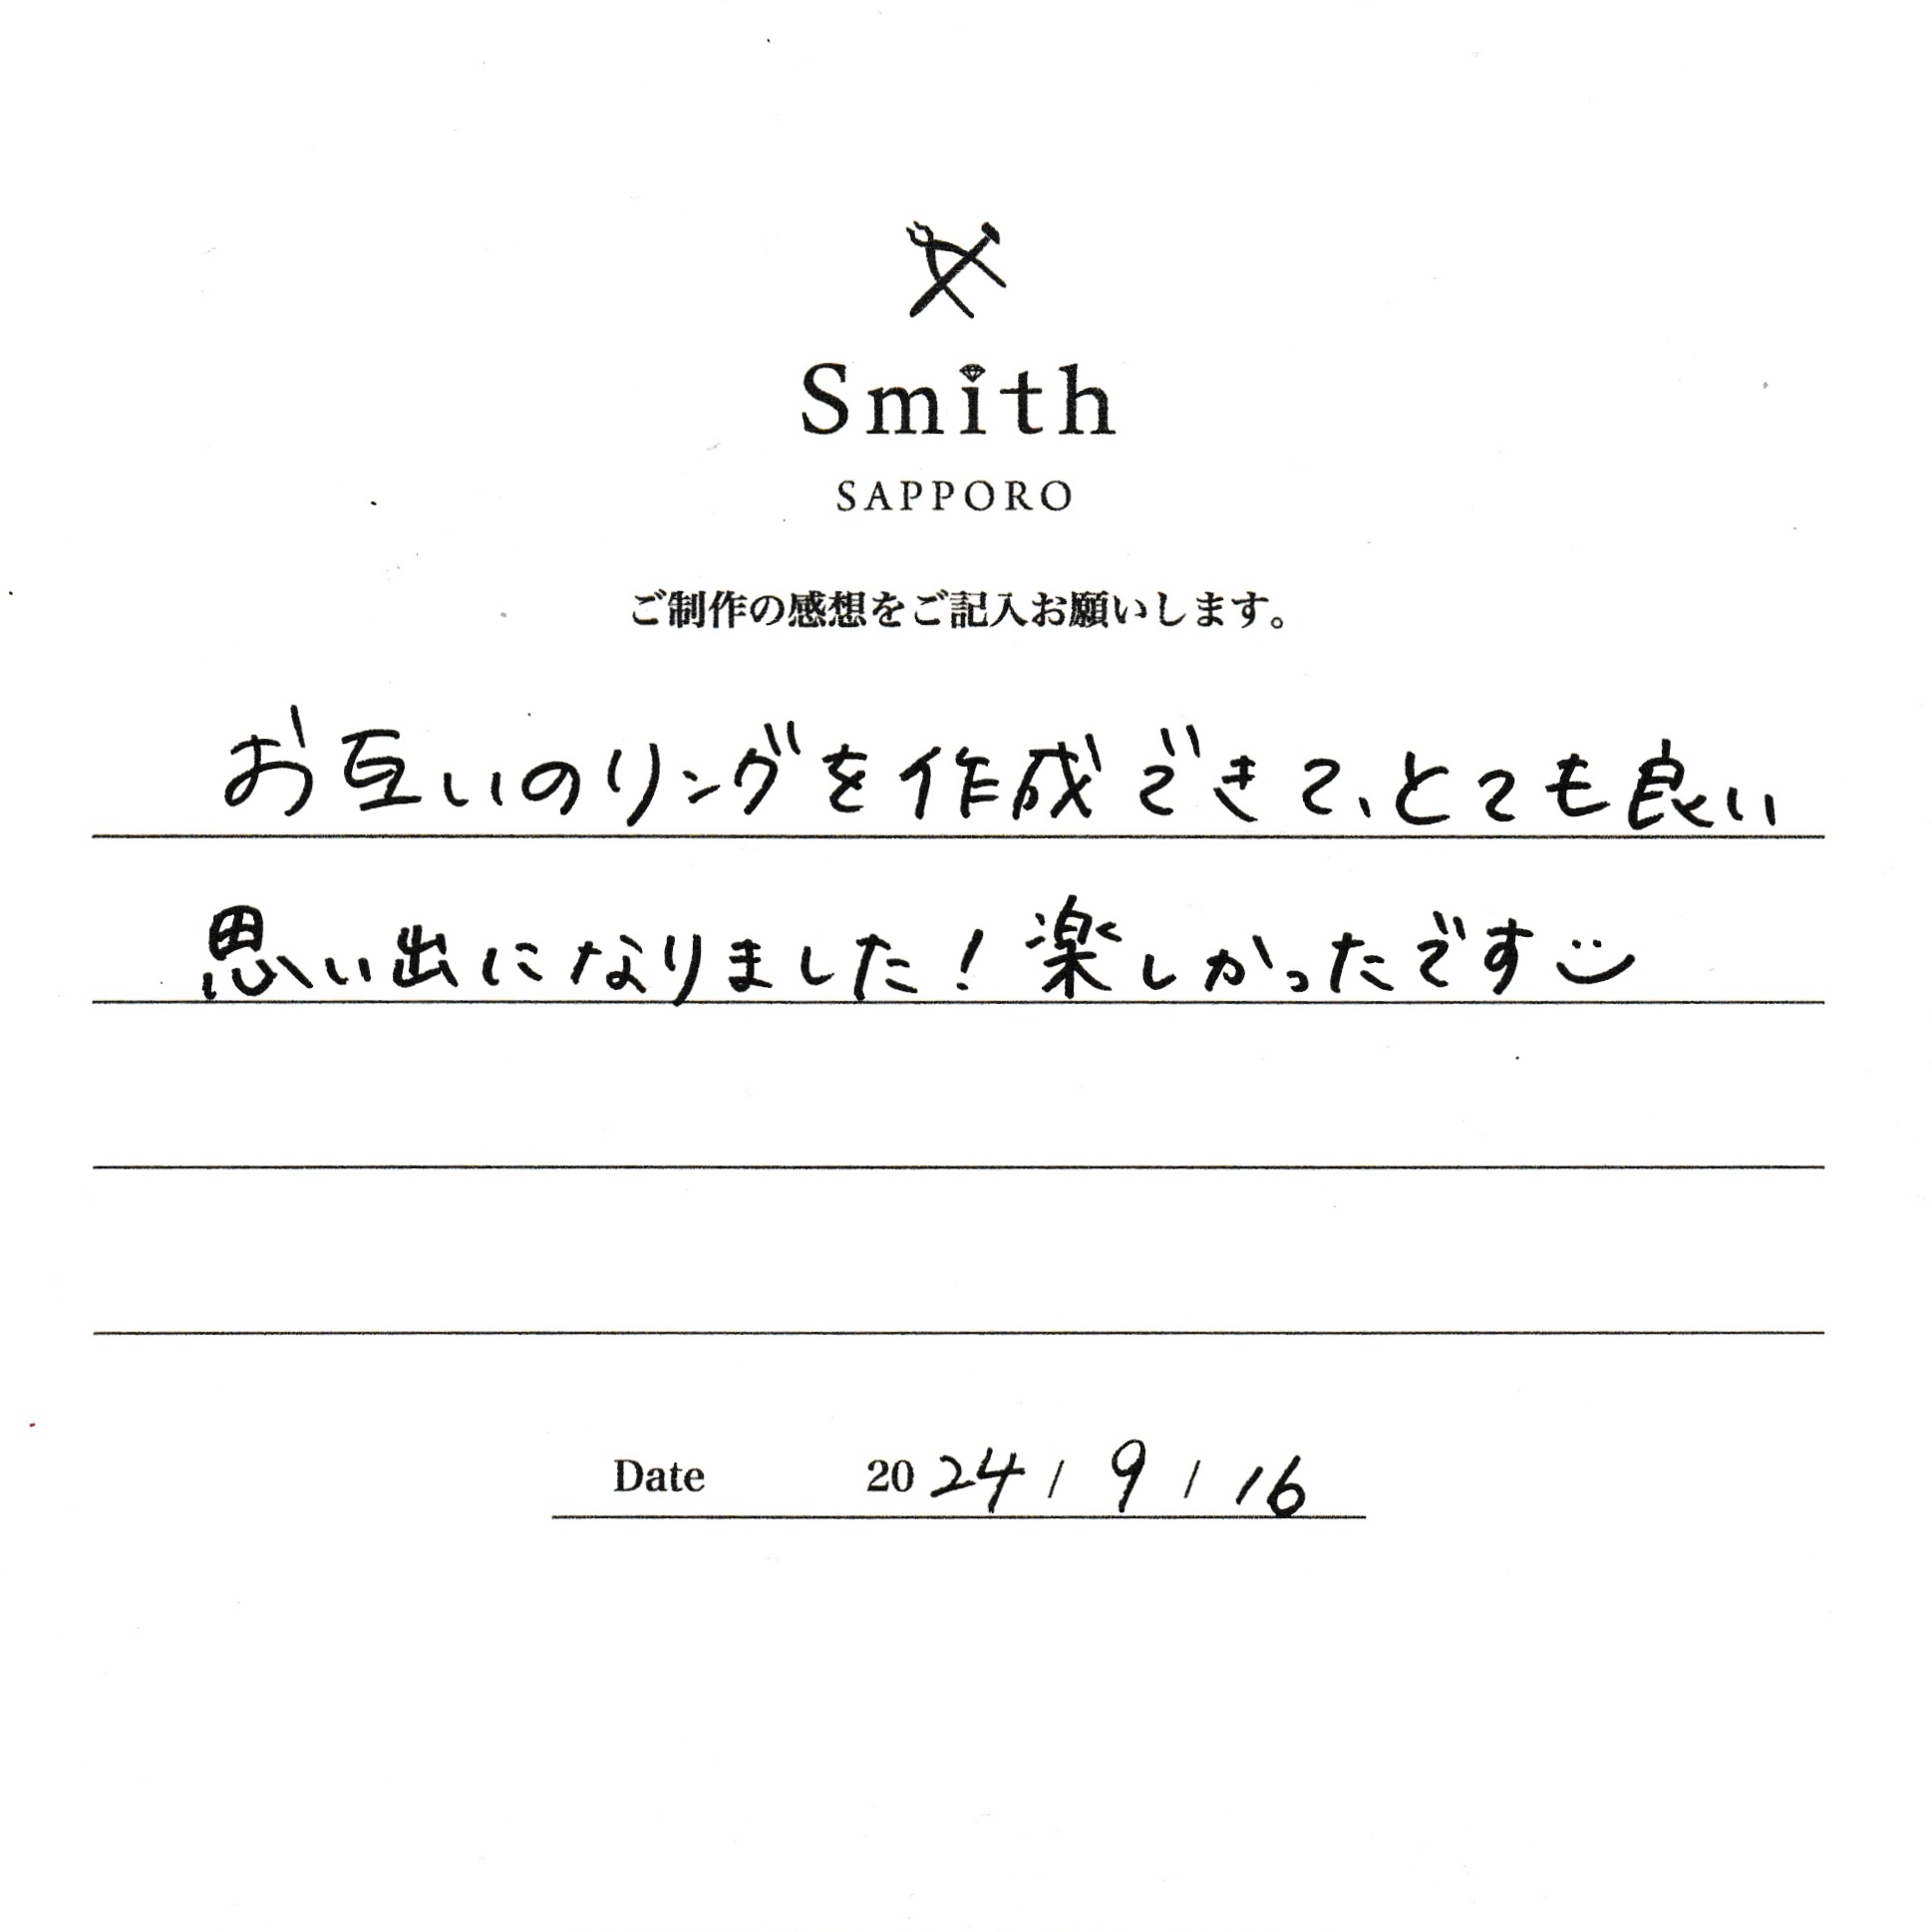 Smith
SAPPORO
ご制作の感想をご記入お願いします。
お互いのリングを作成できて、とても良い
思い出になりました！楽しかったです
Date 2024 / 9 / 16